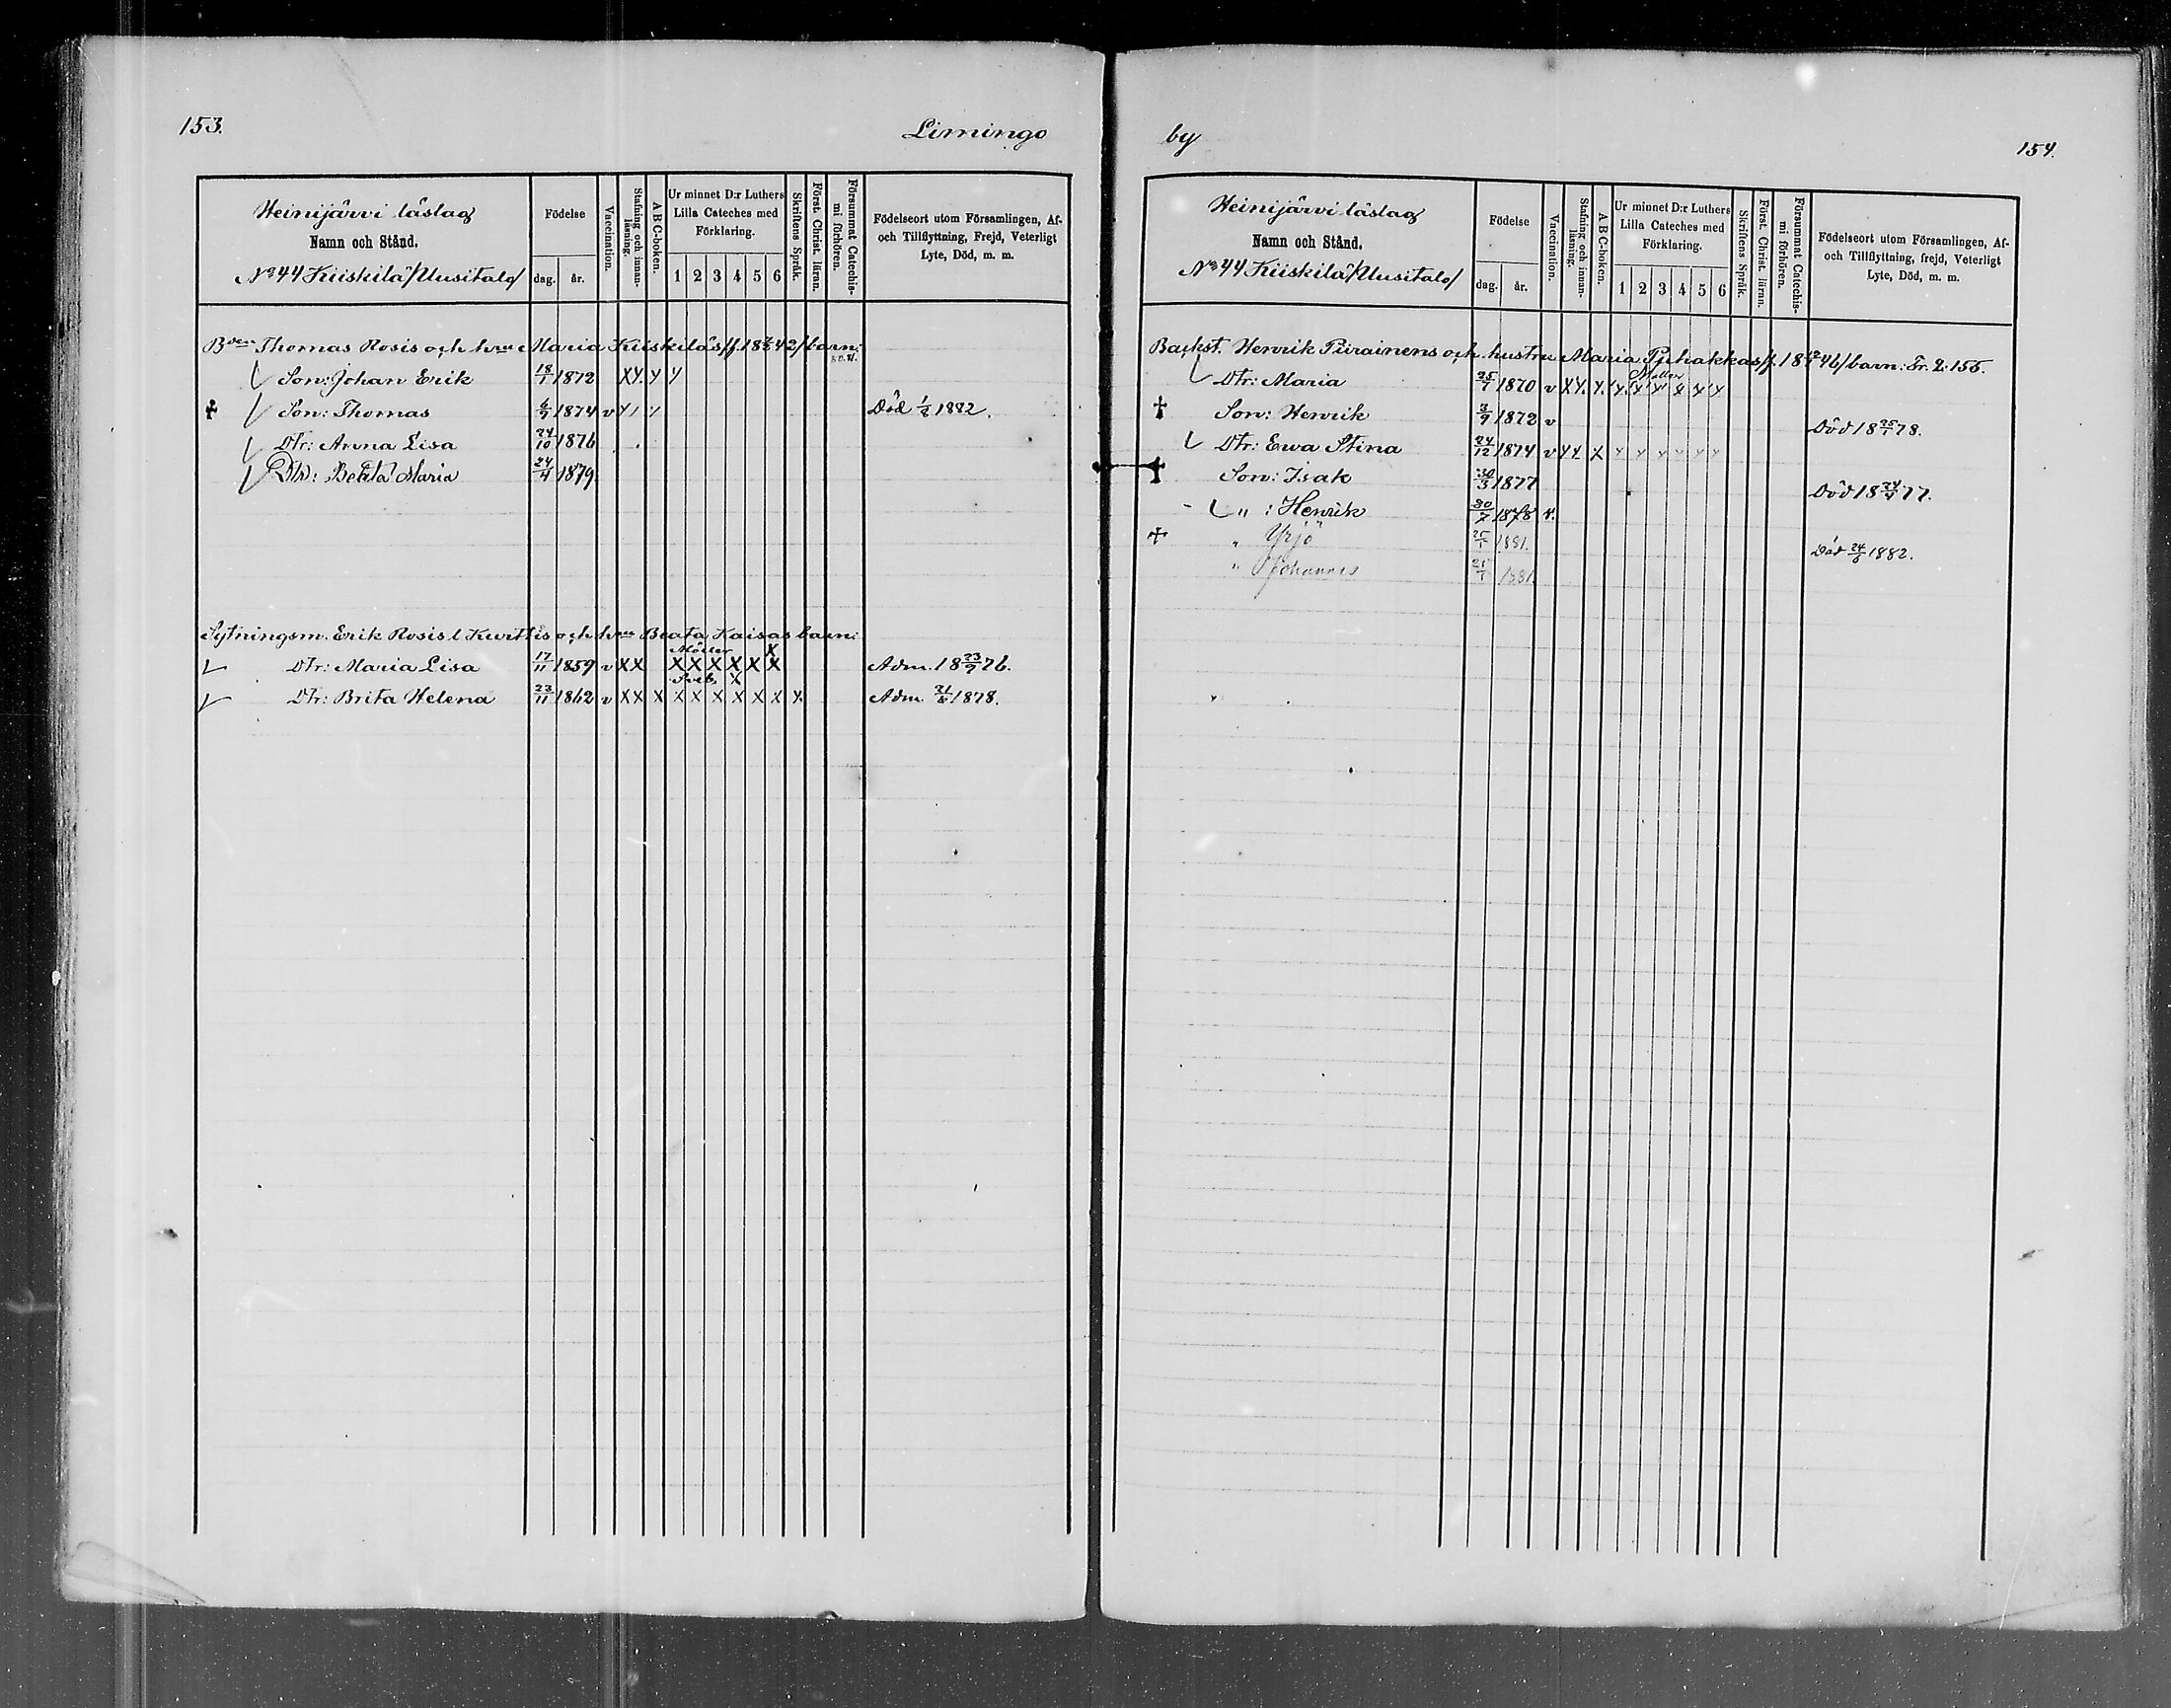 153.
Limingo
Heinijärvi läslag
Namn och Stånd.
No 44 Kiiskilä /Uusitalo/
Födelse
dag. år.
Vaccination.
Stafning och innanläsning.
A B C-boken.
Ur minnet D:r Luthers
Lilla Cateches med
Förklaring.
1 2 3 4 5 6
Skriftens Språk.
Först. Christ. läran.
Försummat Catechismi förhören.
Födelseort utom Församlingen, Af-
och Tillflyttning, Frejd, Veterligt
Lyte, Död, m. m.
Bden Thomas Rosis och hru Maria Kiiskiläs /f. 18 42/ barn:
Son: Johan Erik 18/1 1872 XY. Y Y
Son: Thomas 6/7 1874 v Y Död 1882.
Dtr: Anna Lisa 24/10 1876
Dtr: Beata Maria 24/4 1879
Sytningsm. Erik Rosis l. Kurttis och hru Beata Kaisas barn:
Möller X
Dtr: Maria Lisa 17/11 1859 v XX X X X X X X Adm. 18 23/9 76.
Sveb. X
Dtr: Brita Helena 23/11 1862 v XX X X X X X X X X. Adm. 1878.
by
154.
Heinijärvi läslag
Namn och Stånd.
No 44 Kiiskilä /Uusitalo/
Födelse
dag. år.
Vaccination.
Stafning och innanläsning.
A B C-boken.
Ur minnet D:r Luthers
Lilla Cateches med
Förklaring.
1 2 3 4 5 6
Skriftens Språk.
Först. Christ. läran.
Försummat Catechismi förhören.
Födelseort utom Församlingen, Af-
och Tillflyttning, frejd, Veterligt
Lyte, Död, m. m.
Backst. Henrik Piirainens och hustru Maria Puhakkas /f. 18 46/ barn: Fr. 2. 155.
Dtr: Maria 25/7 1870 v XY. Y. Y Y Y Y Y Y
Son: Henrik 3/9 1872 v Död 18 25/1 78.
Dtr: Ewa Stina 24/12 1874 v YY X Y Y Y Y Y Y
Son: Isak 30/3 1877 Död 18 24/4 77.
" : Henrik 30/7 1878 v.
" Yrjö 1881. Död 1882.
" Johannes 1881